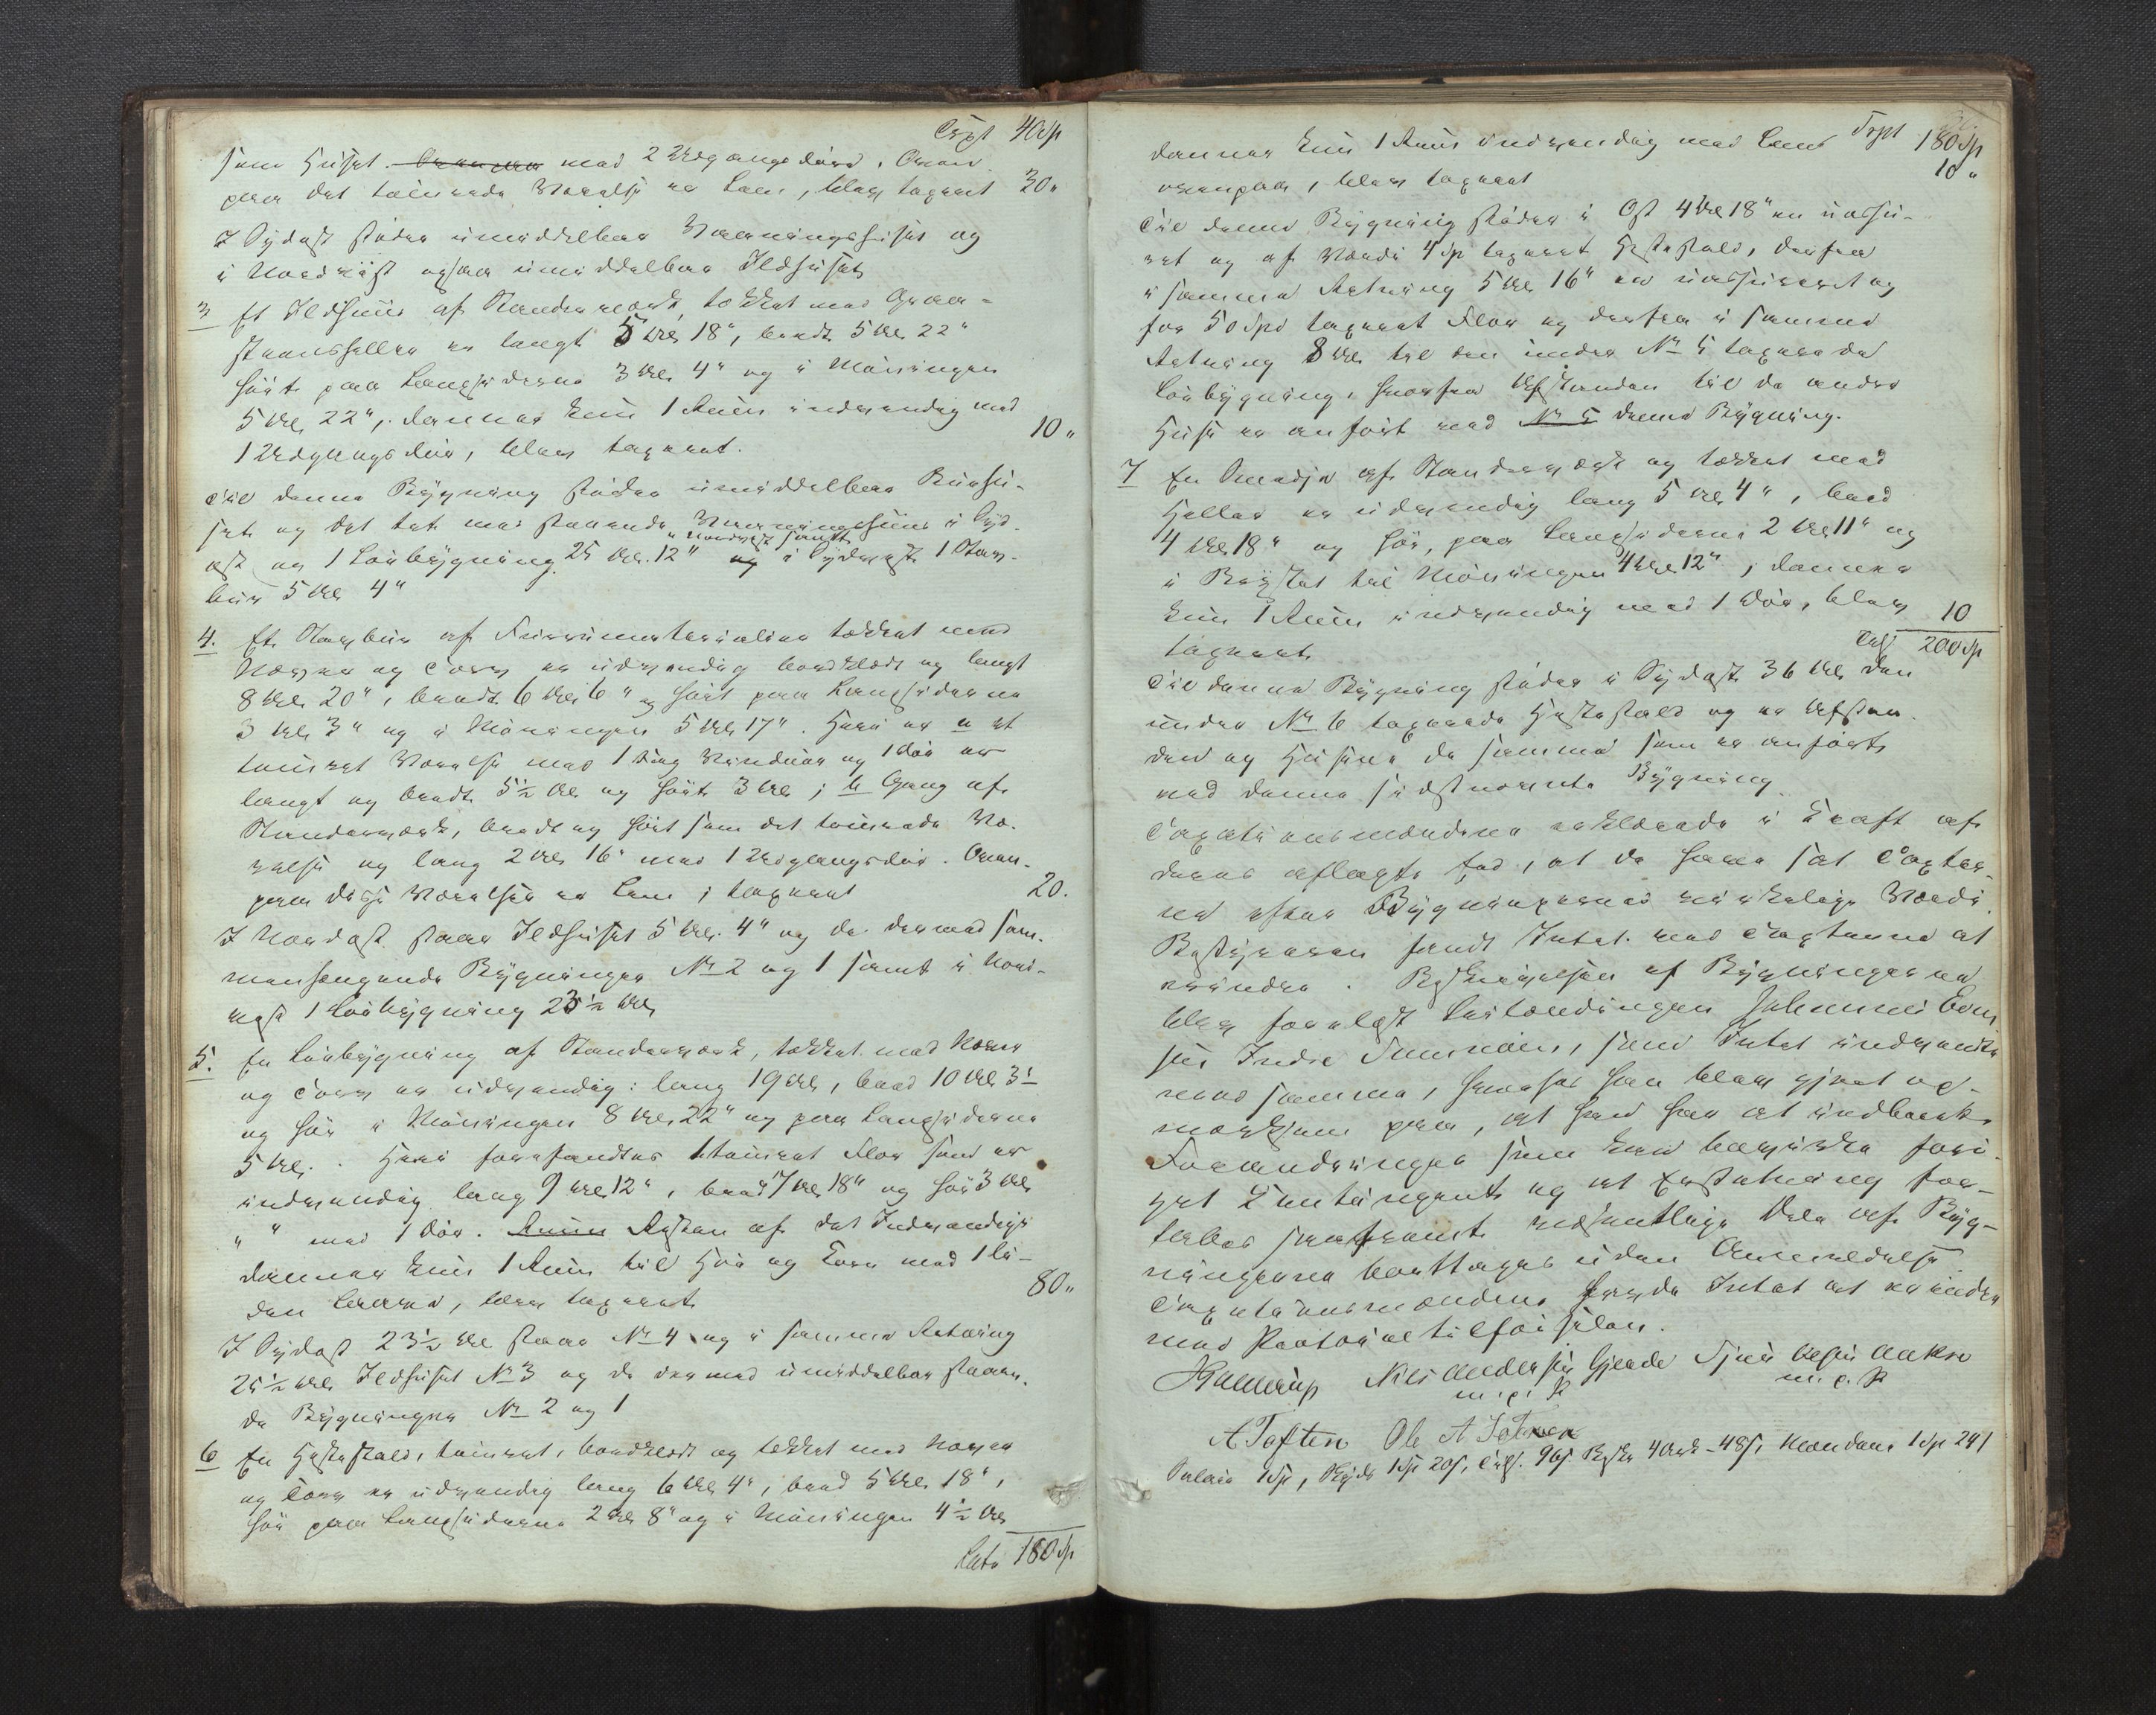 Trspt 40 Sp
som Huset. Ovenover med 2 Udgangsdøre. Oven
paa det tømrede Værelse er Lem, blev taxeret 30 "
I Sydost støder umiddelbar Vaaningshuset og
i Nordvæst ogsaa umiddelbar Ildhuset
3 Et Ildhuus af Standerværk, tækket med Graa-
steensheller er langt 5 Al. 18", bredt 5 Al. 22"
høit paa Langsiderne 3 Al. 4" og i Møningen
5 Al. 22", danner kun 1 Ruum indvendig med
1 Udgangsdør, blev taxeret. 10 "
Til denne Bygning støder umiddelbar Buurhu-
set og det tæt ved staaende Vaaningshuus i Syd-
i Nordvæst samt
ost og 1 Løebygning 25 Al. 12" og i Sydvæst 1 Stav-
buur 5 Al. 4"
4. Et Stavbuur af Fuurumaterialier tækket med
Næver og Torv er udvendig bordklædt og langt
8 Al. 20", bredt 6 Al. 6" og høit paa Langsiderne
3 Al. 3" og i Møningen 5 Al. 17". Heri er a et
tømret Værelse med 1 Fag Vinduer og 1 Dør er
langt og bredt 5½ Al. og høit 3 Al.; b Gang af
Standerværk, bredt og høit som det tømrede Væ-
relse og lang 2 Al. 16" med 1 Udgangsdør. Oven-
paa disse Værelser er Lem; taxeret 20.
I Nordost staar Ildhuset 5 Al. 4" og de dermed sam-
menhængende Bygninger No 2 og 1 samt i Nord-
vest 1 Løebygning 23½ Al.
5. En Løebygning af Standerværk, tækket med Næver
og Torv er udvendig: lang 19 Al., bred 10 Al. 3"
og høi i Møningen 8 Al. 22" og paa Langsiderne
5 Al. Heri forefandtes 1 tømret Flor som er
indvendig lang 9 Al. 12", bred 7 Al. 18" og høi 3 Al.
" " med 1 Dør. Ruum Resten af det Indvendige
danner kun 1 Ruum til Hø og Korn med 1 Lu-
den Laave, blev taxeret 80 "
I Sydost 23½ Al. staar No 4 og i samme Retning
25½ Al. Ildhuset No 3 og de dermed umiddelbar staaen-
de Bygninger No 2 og 1
6 En Hestestald, tømret, bordklædt og tækket med Næver
og Torv er udvendig lang 6 Al. 4", bred 5 Al. 18",
høi paa Langsiderne 2 Al. 8" og i Møningen 4½ Al.
Lats 180 Sp
Trspt 180 Sp
danner kun 1 Ruum indvendig med Lem
ovenpaa, blev taxeret 10 "
Til denne Bygning støder i Ost 4 Al. 18" en uassu-
ret og af Værdi 4 Sp taxeret Hestestald, derfra
i samme Retning 5 Al. 16" en uassureret og
for 50 Spd taxeret Flor og derfra i samme
Retning 8 Al. til den under No 5 taxerede
Løebygning, hvorfra Afstanden til de andre
Huse er anført ved No 5 denne Bygning.
7 En Smedje af Standerværk og tækket med
Heller er udvendig lang 5 Al. 4", bred
4 Al. 18" og høi, paa Langsiderne 2 Al. 11" og
i Røstet til Møningen 4 Al. 12"; danner
kun 1 Ruum indvendig med 1 Dør, blev
taxeret 10
Tils 200 Sp
Til denne Bygning støder i Sydost 36 Al. den
under No 6 taxerede Hestestald og er Afstan-
den og Husene de samme som er anført
ved denne sidstnævnte Bygning
Taxationsmændene erklærede i Kraft af
deres aflagte Eed, at de have sat Taxter-
ne efter Bygningernes virkelige Værdi.
Bestyreren fandt Intet ved Taxterne at
erindre. Beskrivelsen af Bygningerne
blev forelæst Leilændingen Johannes
Indre, som Intet indvendte
mod samme, hvorhos han blev gjort op-
mærksom paa, at han har at indberette
Forandringer som kan bevirke for-
øget Kontingent og at Erstatning for-
tabes saafremt væsentlige Dele af Byg-
ningerne borttages uden Anmeldelse.
Taxationsmændene havde Intet at erindre
mod Protokoltilførselen.
Niels Andersen Gjerde
m. p. P. m. p. P.
A Toften Ole A
1 Sp, Skyds 1 Sp 20 s, Tils. 96 s 4 Ark - 48 s, 1 Sp 24 s